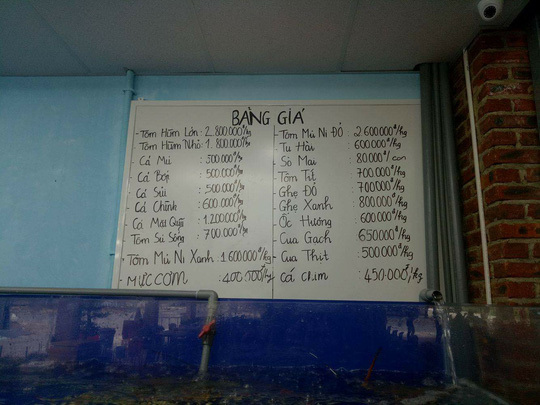 BẢNG GIÁ
- Tôm Hùm Lớn : 2.800.000đ/kg
Tôm Hùm Nhỏ : 1.800.000đ/kg
- Cá Mú : 500.000đ/kg
- Cá Bớp : 500.000đ/kg
- Cá Sủ : 500.000đ/kg
- Cá Chình : 600.000đ/kg
- Cá Mặt Quỷ : 1.200.000đ/kg
- Tôm Sú Sống : 700.000đ/kg
- Tôm Mũ Ni Xanh : 1600000đ/kg
- MỰC CƠM : 400.000đ/kg
- Tôm Mũ Ni ĐỎ : 2600000đ/kg
- Tu Hài : 600000đ/kg
- Sò Mai : 80000đ/con
- Tôm Tít : 700.000đ/kg
- Ghẹ Đỏ : 700000đ/kg
- Ghẹ Xanh : 800000đ/kg
- Ốc Hương : 600000đ/kg
- Cua Gạch : 650000đ/kg
- Cua Thịt : 500000đ/kg
- Cá Chim : 450.000đ/kg